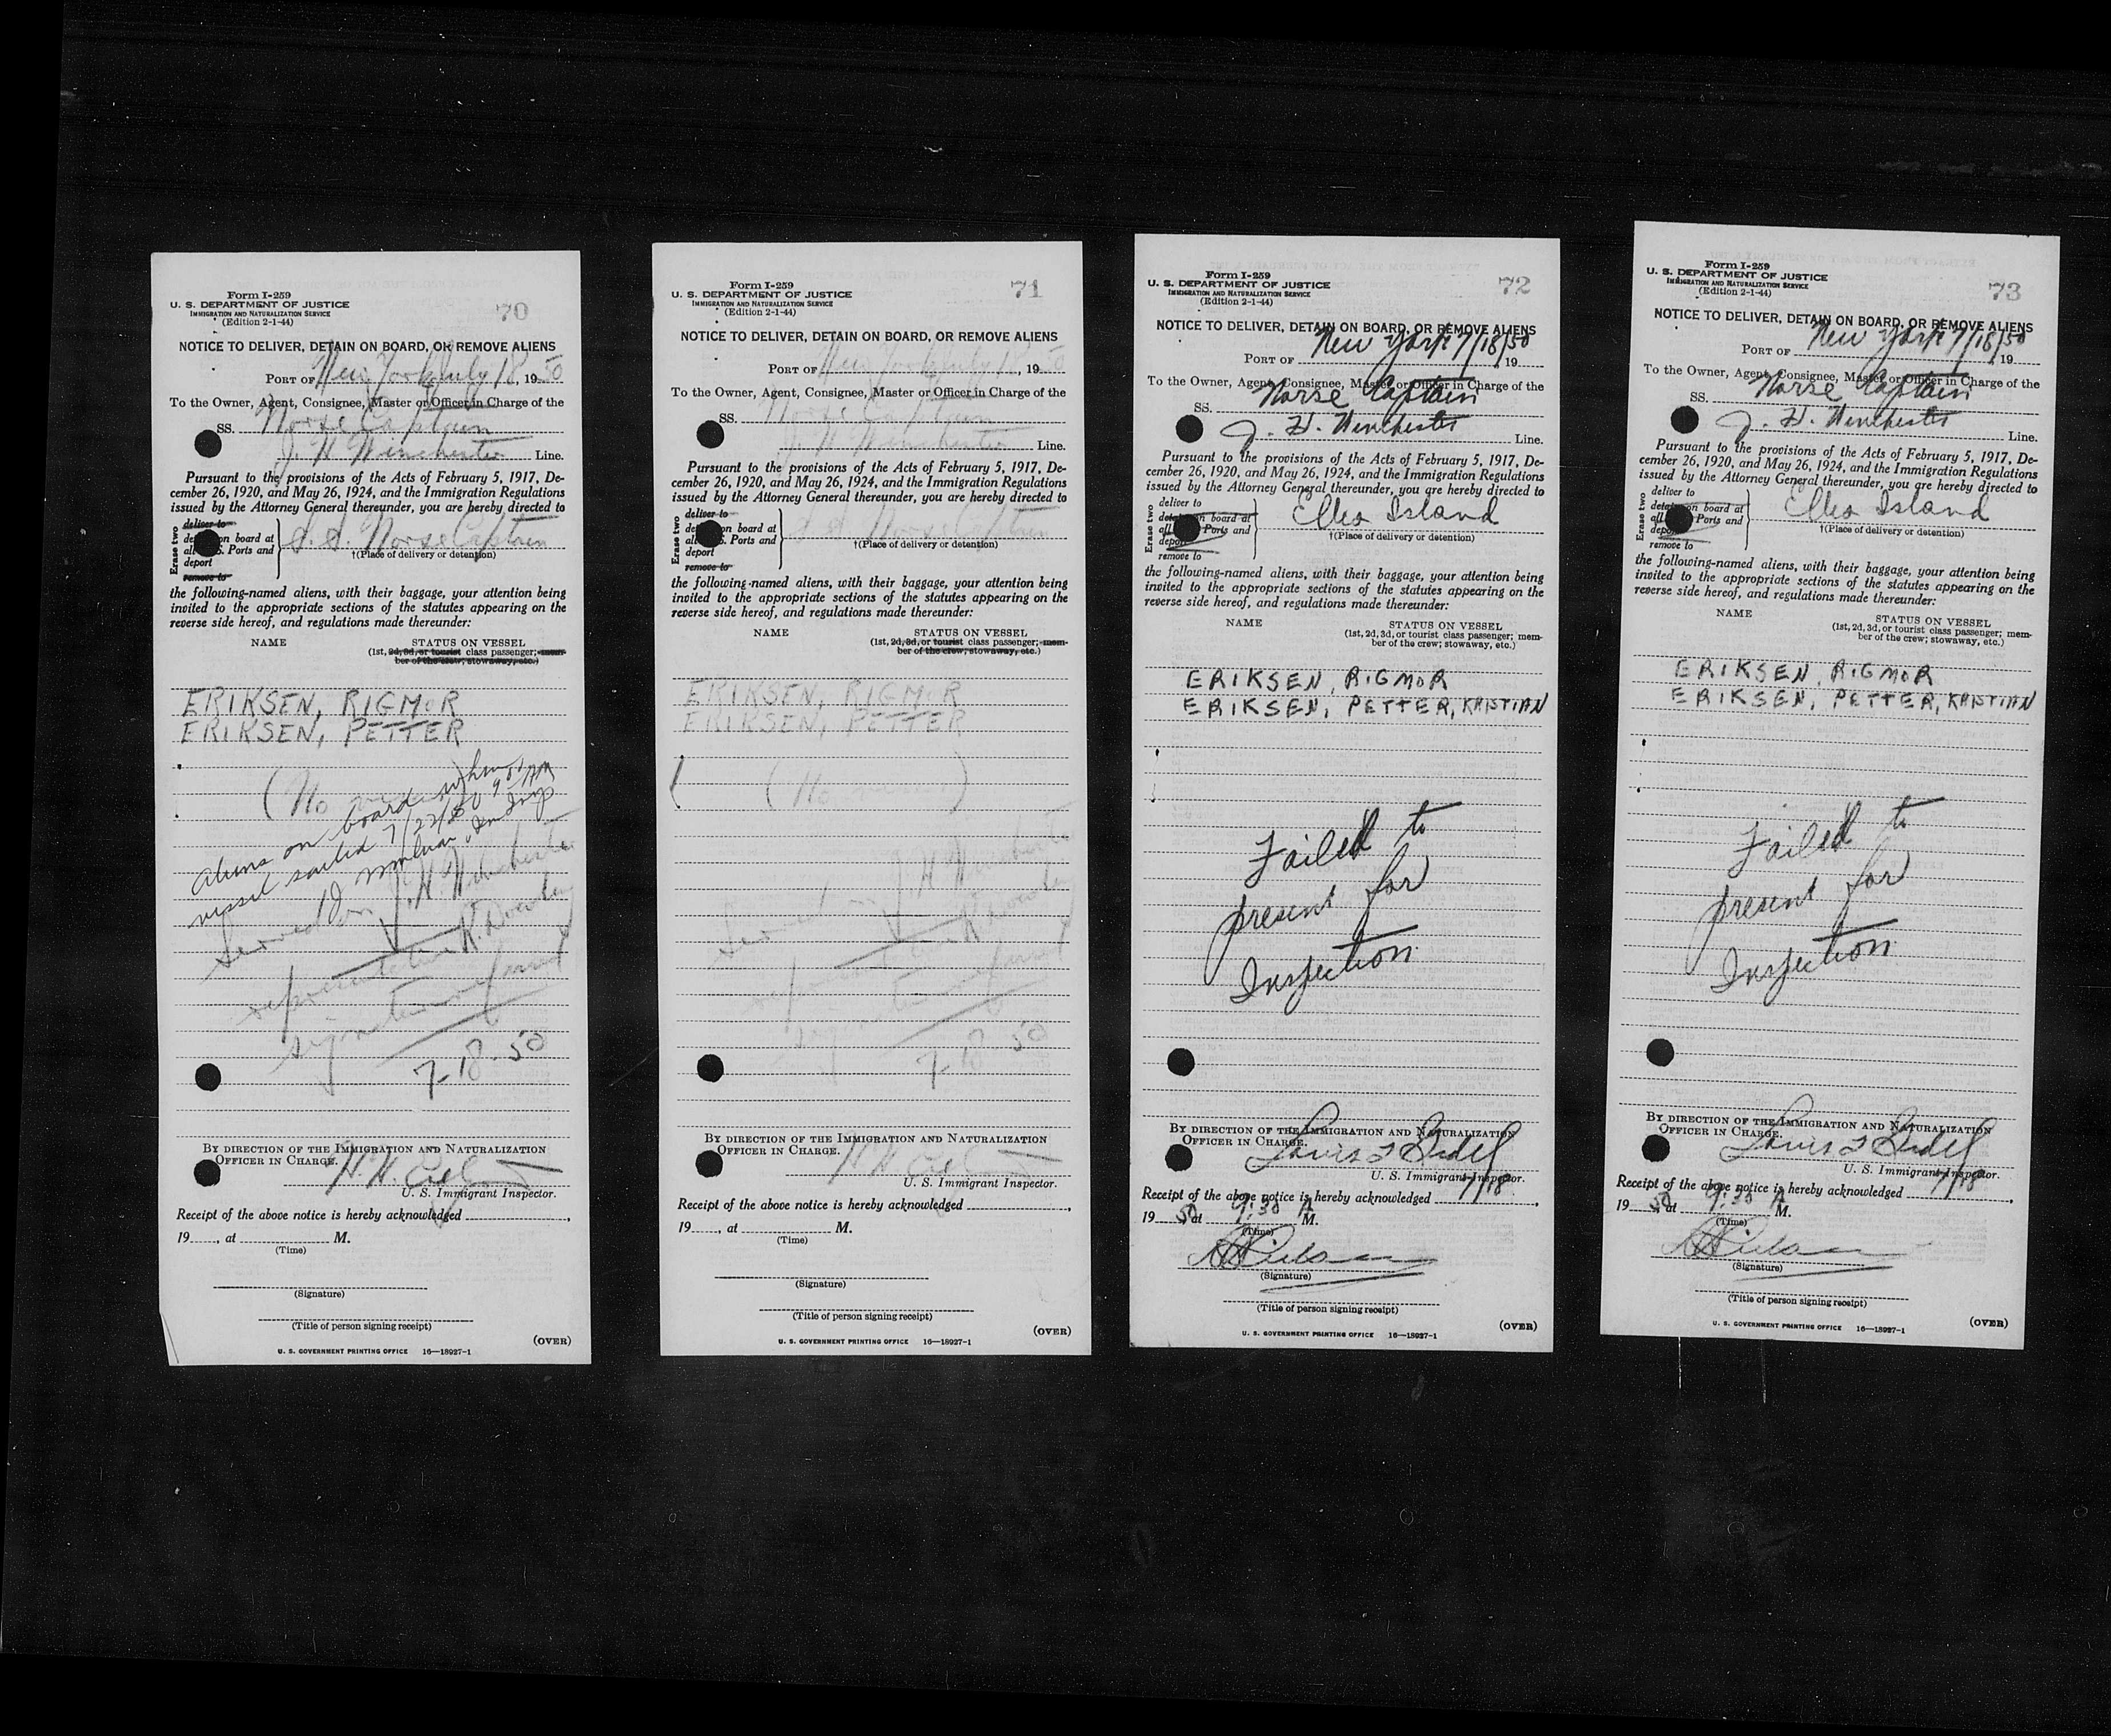 Form I-259
U. S. DEPARTMENT OF JUSTICE
IMMIGRATION AND NATURALIZATION SERVICE
(Edition 2-1-44)
70
NOTICE TO DELIVER, DETAIN ON BOARD, OR REMOVE ALIENS
PORT OF New York July 18, 1950
To the Owner, Agent, Consignee, Master or Officer in Charge of the
SS. Norse Captain
J. H. Winchester Line.
Pursuant to the provisions of the Acts of February 5, 1917, De-
cember 26, 1920, and May 26, 1924, and the Immigration Regulations
issued by the Attorney General thereunder, you are hereby directed to
Erase two
deliver to
on board at
Ports and
deport
remove to
S. S. Norse Captain
†(Place of delivery or detention)
the following-named aliens, with their baggage, your attention being
invited to the appropriate sections of the statutes appearing on the
reverse side hereof, and regulations made thereunder:
NAME STATUS ON VESSEL
(1st, 2d, 3d, or tourist class passenger; mem-
ber of the crew; stowaway, etc.)
ERIKSEN, RIGMOR
ERIKSEN, PETTER
(No
Aliens on board when
vessel sailed 7/22/50 9 AM
Served on J. H. Winchester
representative K.
signature
7-18-50
BY DIRECTION OF THE IMMIGRATION AND NATURALIZATION
OFFICER IN CHARGE.
U. S. Immigrant Inspector.
Receipt of the above notice is hereby acknowledged
19, at M.
(Time)
(Signature)
(Title of person signing receipt)
(OVER)
U. S. GOVERNMENT PRINTING OFFICE 16—18927-1
Form I-259
U. S. DEPARTMENT OF JUSTICE
IMMIGRATION AND NATURALIZATION SERVICE
(Edition 2-1-44)
71
NOTICE TO DELIVER, DETAIN ON BOARD, OR REMOVE ALIENS
PORT OF New York July 18, 1950
To the Owner, Agent, Consignee, Master or Officer in Charge of the
SS. Norse Captain
J. H. Winchester Line.
Pursuant to the provisions of the Acts of February 5, 1917, De-
cember 26, 1920, and May 26, 1924, and the Immigration Regulations
issued by the Attorney General thereunder, you are hereby directed to
Erase two
deliver to
on board at
Ports and
deport
remove to
S. S. Norse Captain
†(Place of delivery or detention)
the following-named aliens, with their baggage, your attention being
invited to the appropriate sections of the statutes appearing on the
reverse side hereof, and regulations made thereunder:
NAME STATUS ON VESSEL
(1st, 2d, 3d, or tourist class passenger; mem-
ber of the crew; stowaway, etc.)
ERIKSEN, RIGMOR
ERIKSEN, PETTER
(No
Served on J. H. Winchester
7-18 50
BY DIRECTION OF THE IMMIGRATION AND NATURALIZATION
OFFICER IN CHARGE.
U. S. Immigrant Inspector.
Receipt of the above notice is hereby acknowledged
19, at M.
(Time)
(Signature)
(Title of person signing receipt)
(OVER)
U. S. GOVERNMENT PRINTING OFFICE 16—18927-1
Form I-259
U. S. DEPARTMENT OF JUSTICE
IMMIGRATION AND NATURALIZATION SERVICE
(Edition 2-1-44)
72
NOTICE TO DELIVER, DETAIN ON BOARD, OR REMOVE ALIENS
PORT OF New York 7/18/50, 19
To the Owner, Agent, Consignee, Master or Officer in Charge of the
SS. Norse Captain
J. H. Winchester Line.
Pursuant to the provisions of the Acts of February 5, 1917, De-
cember 26, 1920, and May 26, 1924, and the Immigration Regulations
issued by the Attorney General thereunder, you are hereby directed to
Erase two
deliver to
on board at
Ports and
remove to
Ellis Island
†(Place of delivery or detention)
the following-named aliens, with their baggage, your attention being
invited to the appropriate sections of the statutes appearing on the
reverse side hereof, and regulations made thereunder:
NAME STATUS ON VESSEL
(1st, 2d, 3d, or tourist class passenger; mem-
ber of the crew; stowaway, etc.)
ERIKSEN, RIGMOR
ERIKSEN, PETTER, KRISTIAN
Failed to
present for
Inspection
BY DIRECTION OF THE IMMIGRATION AND NATURALIZATION
OFFICER IN CHARGE.
Louis
U. S. Immigrant Inspector.
Receipt of the above notice is hereby acknowledged 7/18,
1950, at 9:30 A M.
(Time)
(Signature)
(Title of person signing receipt)
(OVER)
U. S. GOVERNMENT PRINTING OFFICE 16—18927-1
Form I-259
U. S. DEPARTMENT OF JUSTICE
IMMIGRATION AND NATURALIZATION SERVICE
(Edition 2-1-44)
73
NOTICE TO DELIVER, DETAIN ON BOARD, OR REMOVE ALIENS
PORT OF New York 7/18/50, 19
To the Owner, Agent, Consignee, Master or Officer in Charge of the
SS. Norse Captain
J. H. Winchester Line.
Pursuant to the provisions of the Acts of February 5, 1917, De-
cember 26, 1920, and May 26, 1924, and the Immigration Regulations
issued by the Attorney General thereunder, you are hereby directed to
Erase two
deliver to
on board at
Ports and
remove to
Ellis Island
†(Place of delivery or detention)
the following-named aliens, with their baggage, your attention being
invited to the appropriate sections of the statutes appearing on the
reverse side hereof, and regulations made thereunder:
NAME STATUS ON VESSEL
(1st, 2d, 3d, or tourist class passenger; mem-
ber of the crew; stowaway, etc.)
ERIKSEN, RIGMOR
ERIKSEN, PETTER, KRISTIAN
Failed to
present for
Inspection
BY DIRECTION OF THE IMMIGRATION AND NATURALIZATION
OFFICER IN CHARGE.
Louis
U. S. Immigrant Inspector.
Receipt of the above notice is hereby acknowledged 7/18,
1950, at 9:30 A M.
(Time)
(Signature)
(Title of person signing receipt)
(OVER)
U. S. GOVERNMENT PRINTING OFFICE 16—18927-1